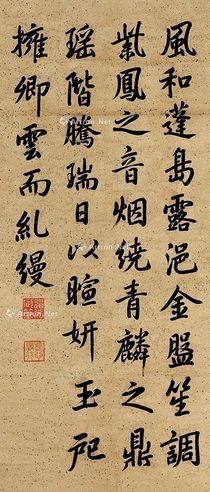 風和蓬島露浥金盤笙調
紫鳳之音烟繞青麟之鼎
瑶階騰瑞日以暄妍玉戺
擁卿雲而糺縵
Artron.Net